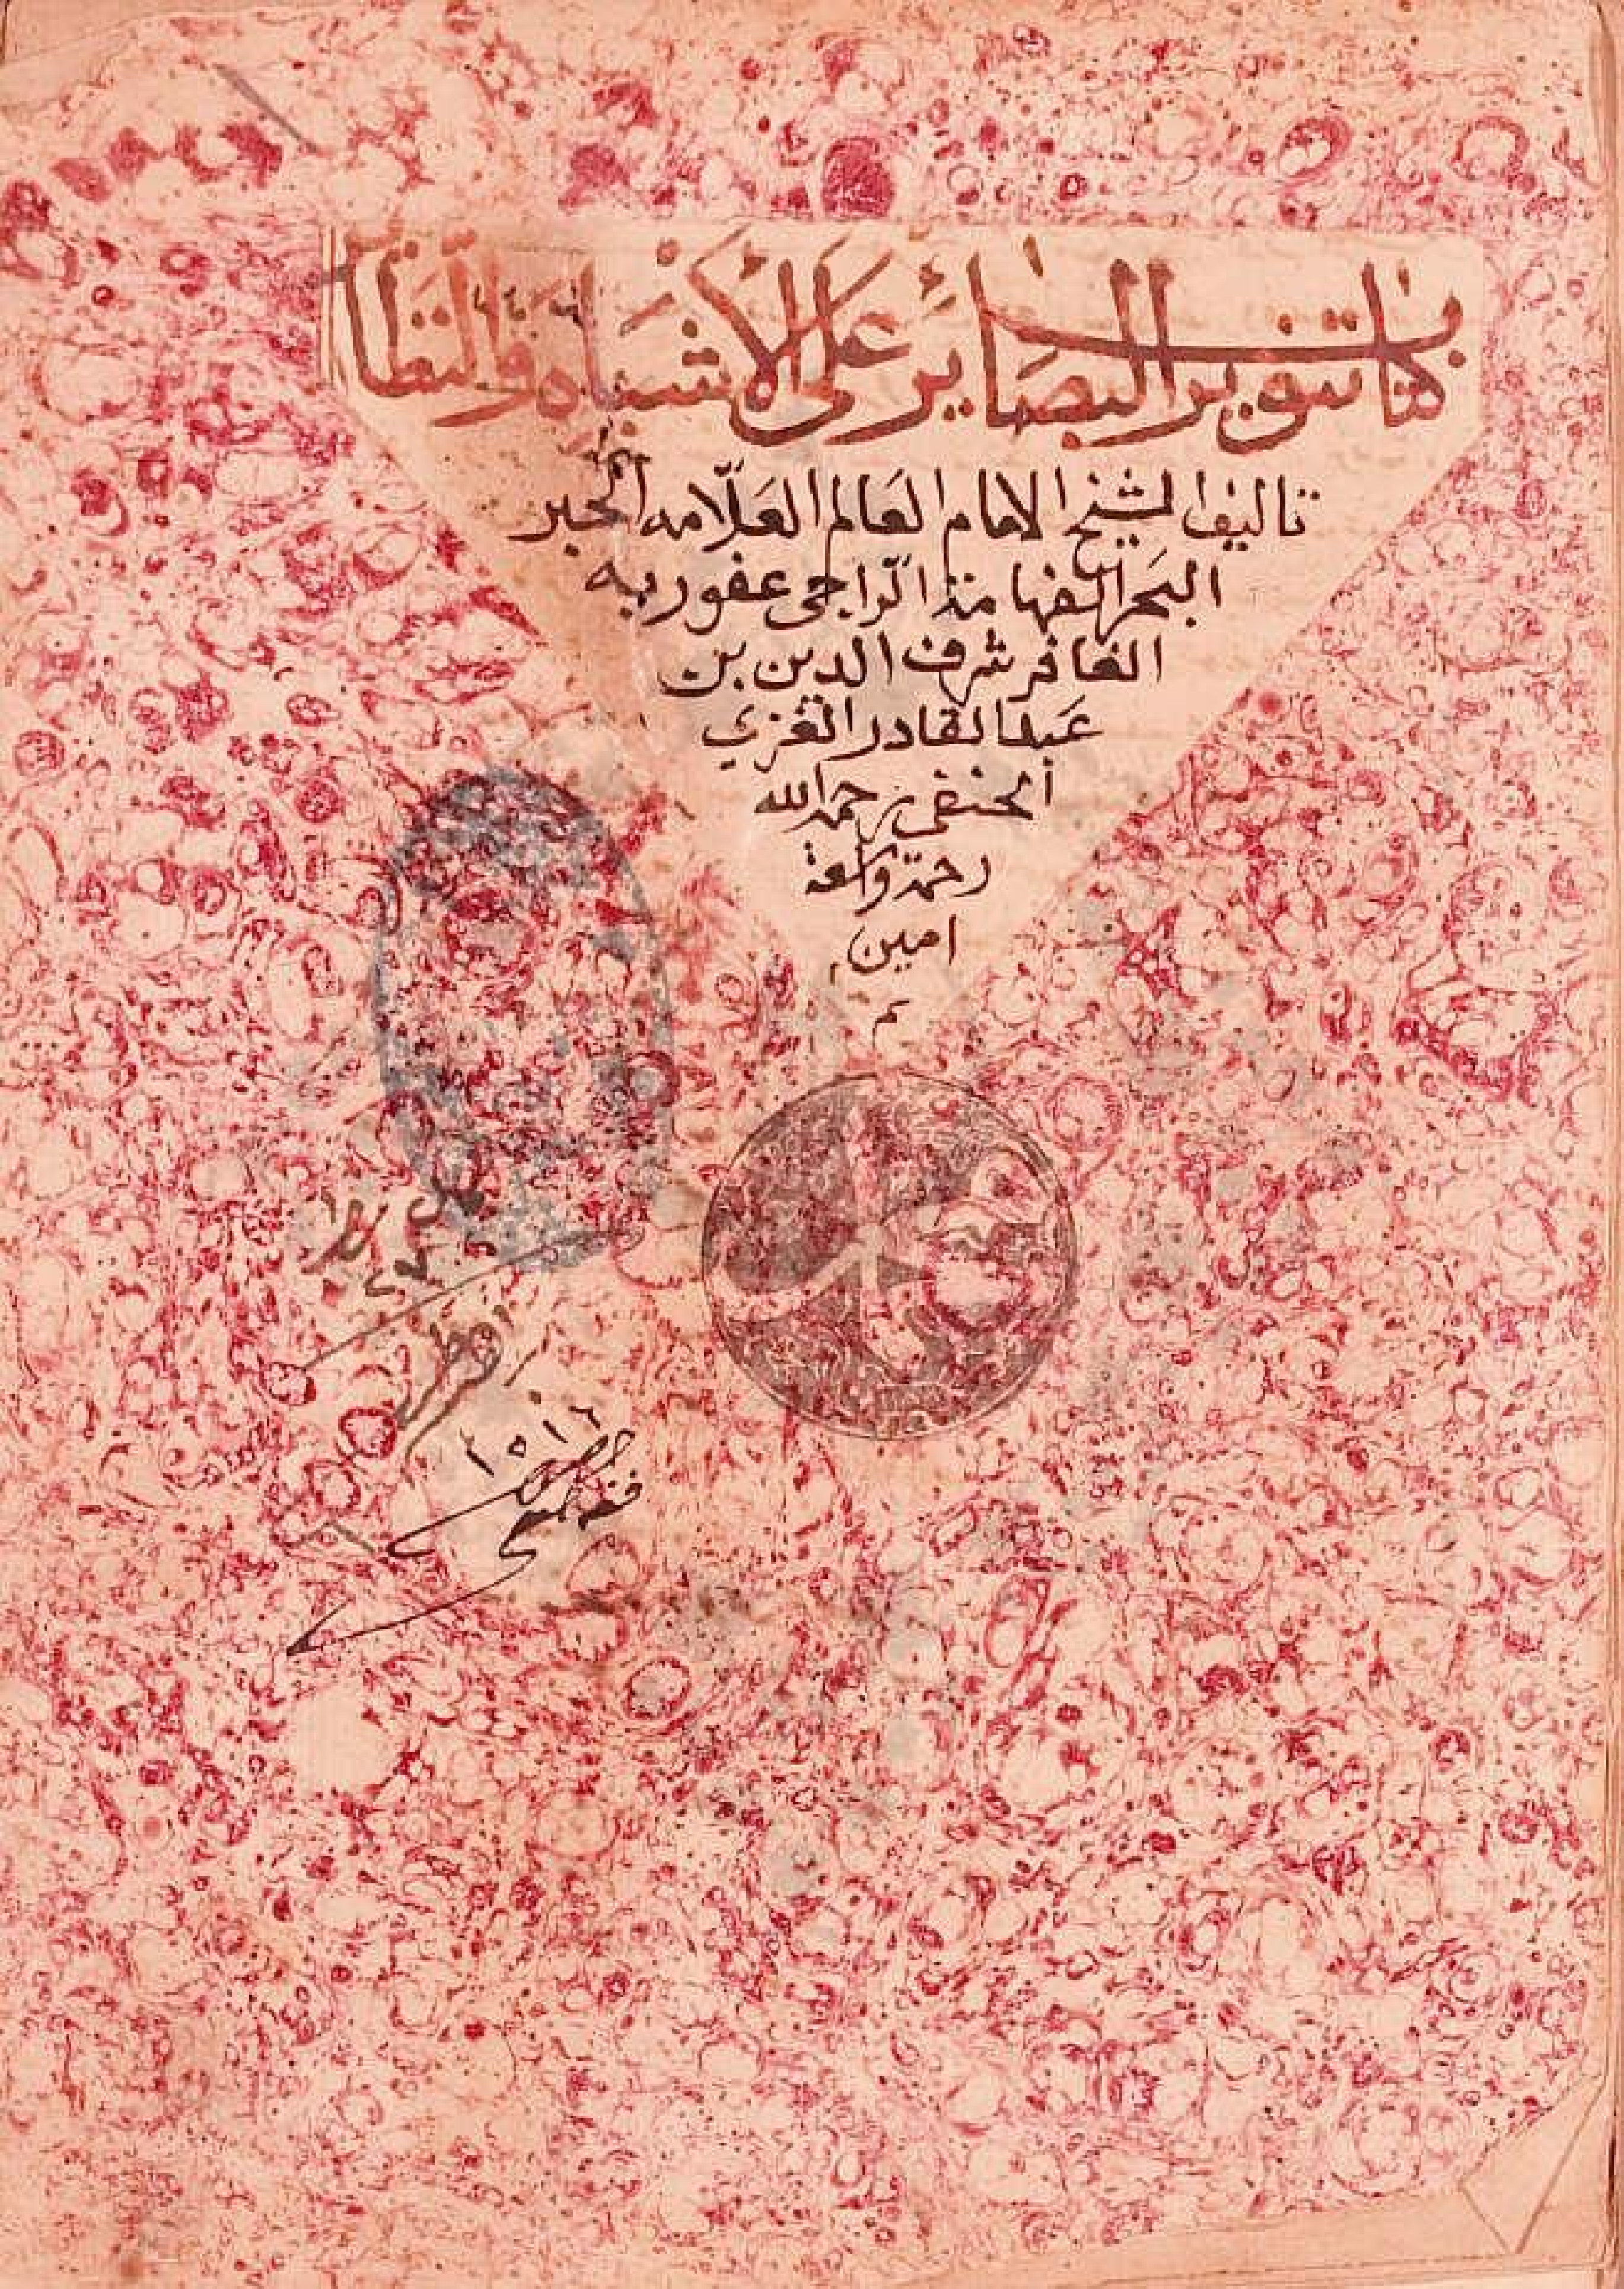 كتاب تنوير البصائر على الأشباه والنظائر
تاليف الشيخ الامام العالم العلامه الحبر
البحر الفهامة الراجى عفو ربه
الغافر شرف الدين بن
عبد القادر الغزي
الحنفي رحمه الله
رحمة واسعة
امين
تم